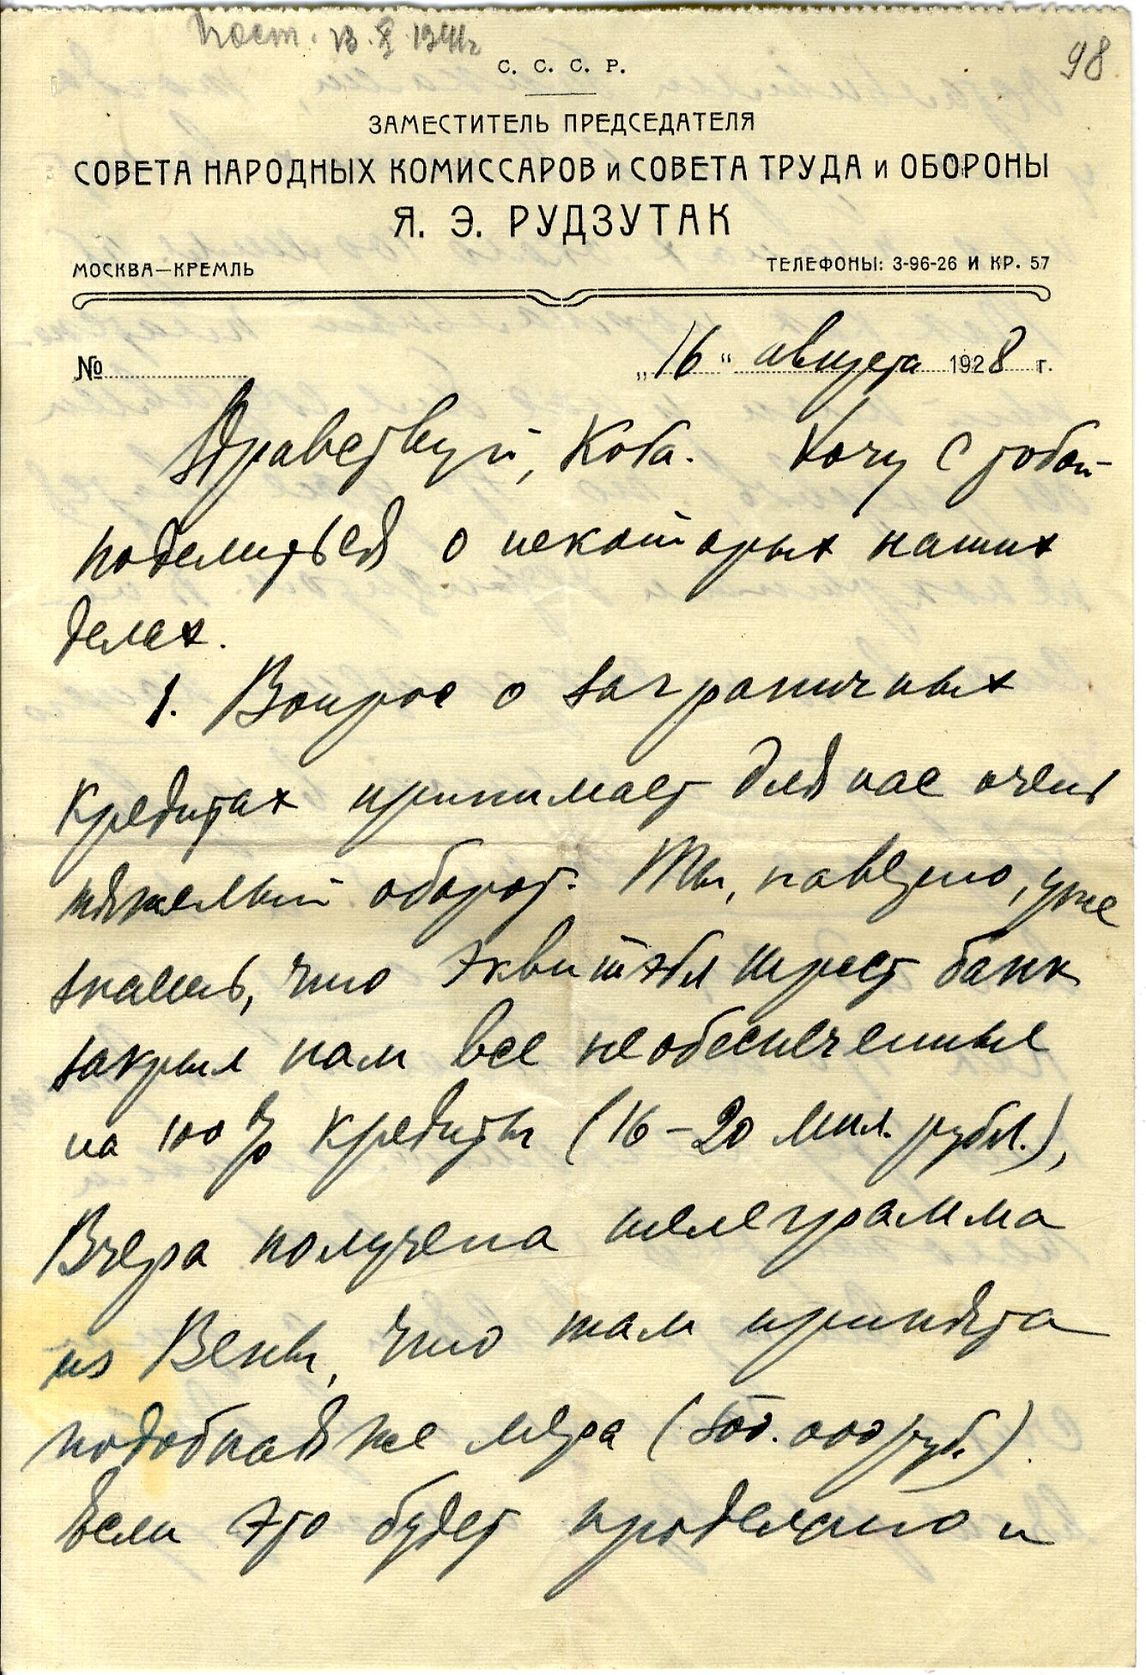 Пост. 13.X.1941г
98
С. С. С. Р.
ЗАМЕСТИТЕЛЬ ПРЕДСЕДАТЕЛЯ
СОВЕТА НАРОДНЫХ КОМИССАРОВ и СОВЕТА ТРУДА и ОБОРОНЫ
Я. Э. РУДЗУТАК
МОСКВА—КРЕМЛЬ
ТЕЛЕФОНЫ: 3-96-26 И КР. 57
№ „16" августа 1928 г.
Здравствуй, Коба. Хочу с тобой
поделиться о некоторых наших
делах.
1. Вопрос о заграничных
кредитах принимает для нас очень
тяжелый оборот. Ты, наверно, уже
знаешь, что Эквитэбл трест банк
закрыл нам все необеспеченные
на 100% кредиты (16–20 мил. рубл.),
Вчера получена телеграмма
из Вены, что там принята
подобная же мера (800.000 руб.).
Если это будет проделано и